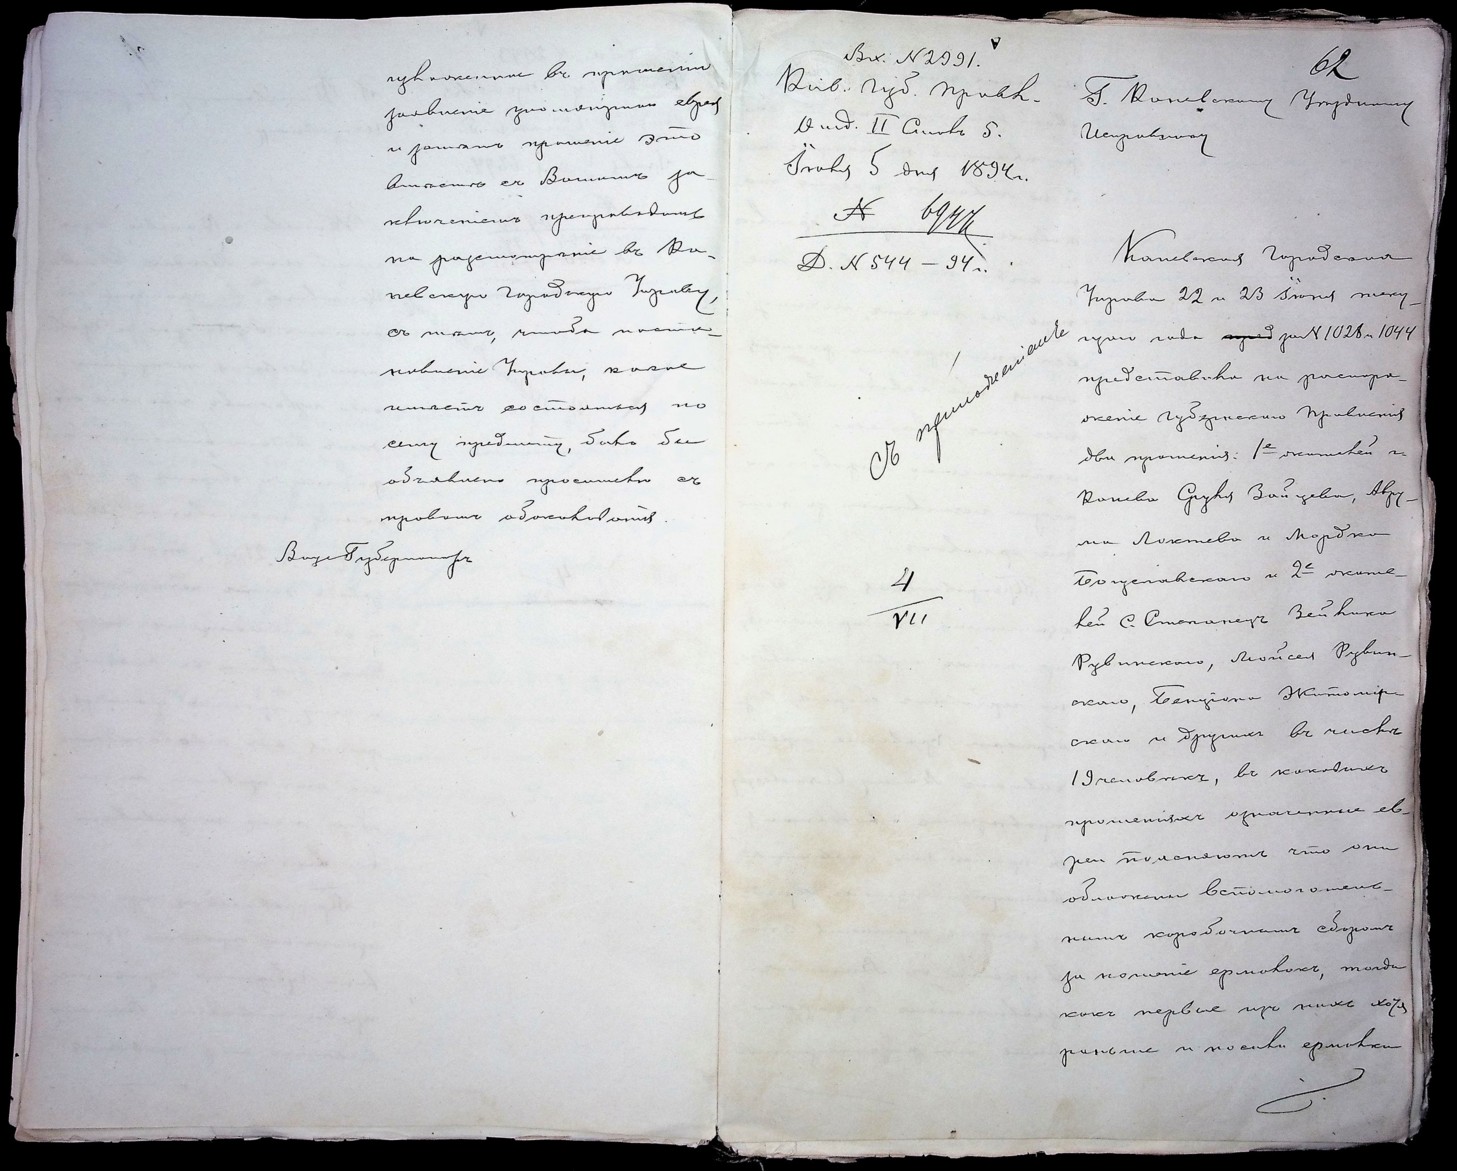 изложенное въ прошенiи
заявленiе упомянутыхъ еврея
и затемъ прошенiе это
вместе съ Вашимъ за-
ключенiемъ препроводить
на разсмотренiе въ Ка-
невскую Городскую Управу,
съ темъ, чтобы поста-
новленiе Управы, какое
имеетъ состояться по
сему предмету, было бы
объявлено просителю съ
правомъ обжалованiя.
Вице Губернаторъ
Вх. N 2991.
Кiев. Губ. Правл.
Отд. II Столъ 5.
Iюня 5 дня 1894 г.
N
Д. N 544 – 94 г.
Съ приложенiемъ
4
VII
62
Г. Каневскому Уездному
Исправнику
Каневская Городская
Управа 22 и 23 Iюня теку-
щаго года за N 1028 и 1044
представила на распоря-
женiе Губернскаго Правленiя
два прошенiя: 1е жителей г.
Канева Сруля Зайцева, Авру-
ма Локтева и Мордка
Богуславскаго и 2е жите-
лей С. Степанецъ Зейлика
Рувинскаго, Мойсея Рувин-
скаго, Бенцiона Житомiр-
скаго и другихъ въ числе
19 человекъ, въ каковыхъ
прошенiяхъ означенные ев-
реи поясняютъ что они
обложены вспомогатель-
нымъ коробочнымъ сборомъ
за ношенiе ермолокъ, тогда
какъ первые изъ нихъ хотя
раньше и носили ермолки